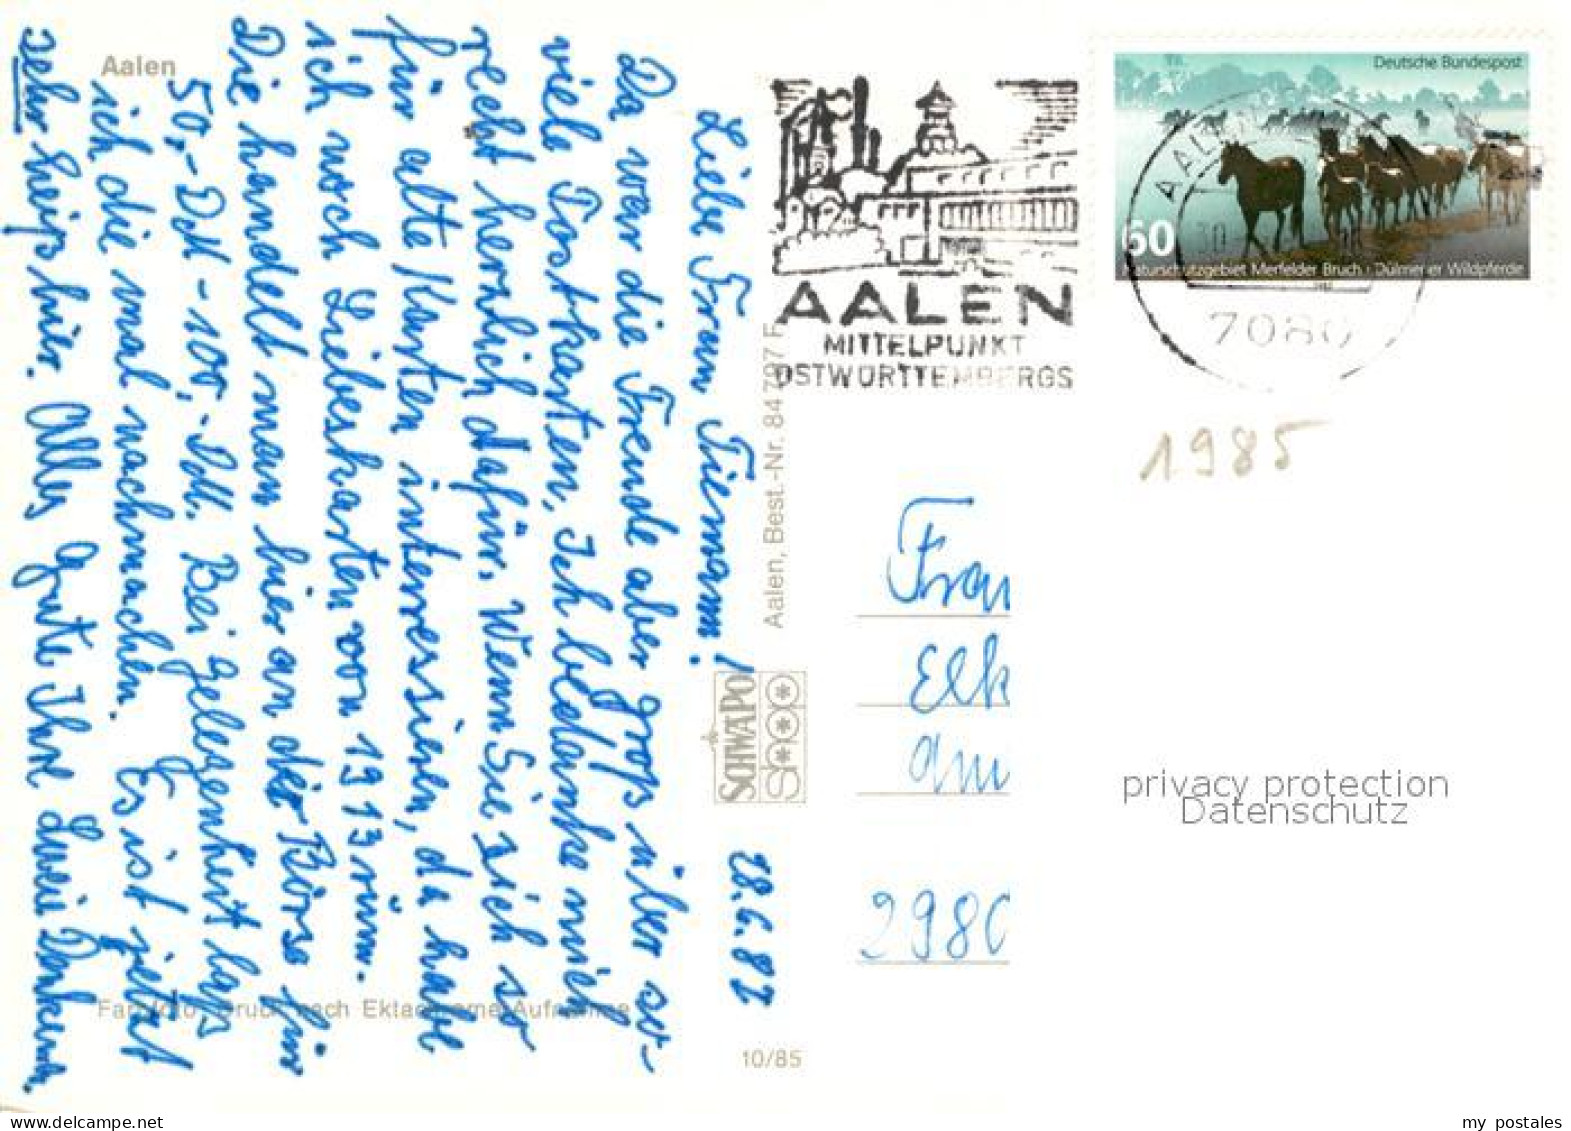 Aalen
28.6.87
Liebe Frau Tiemann!
Da war die Freude aber groß über so-
viele Postkarten, Ich bedanke mich
recht herzlich dafür. Wenn Sie sich so
für alte Karten interessieren, da habe
ich noch Liebeskarten von 1913 rum.
Die handelt man hier an der Börse für
50,-DM - 100,-DM. Bei Gelegenheit laß
ich die mal nachmachen. Es ist jetzt
sehr heiß hier. Alles Gute Ihre
Farbfoto, Druck nach Ektachrome-Aufnahme
Aalen, Best.-Nr. 84 797 F
SCHWAPO
10/85
AALEN
MITTELPUNKT
OSTWÜRTTEMBERGS
Deutsche Bundespost
60
Naturschutzgebiet Merfelder Bruch · Dülmener Wildpferde
AALEN
7080
1985
Frau
Elk
Am
2980
privacy protection
Datenschutz
my_postales